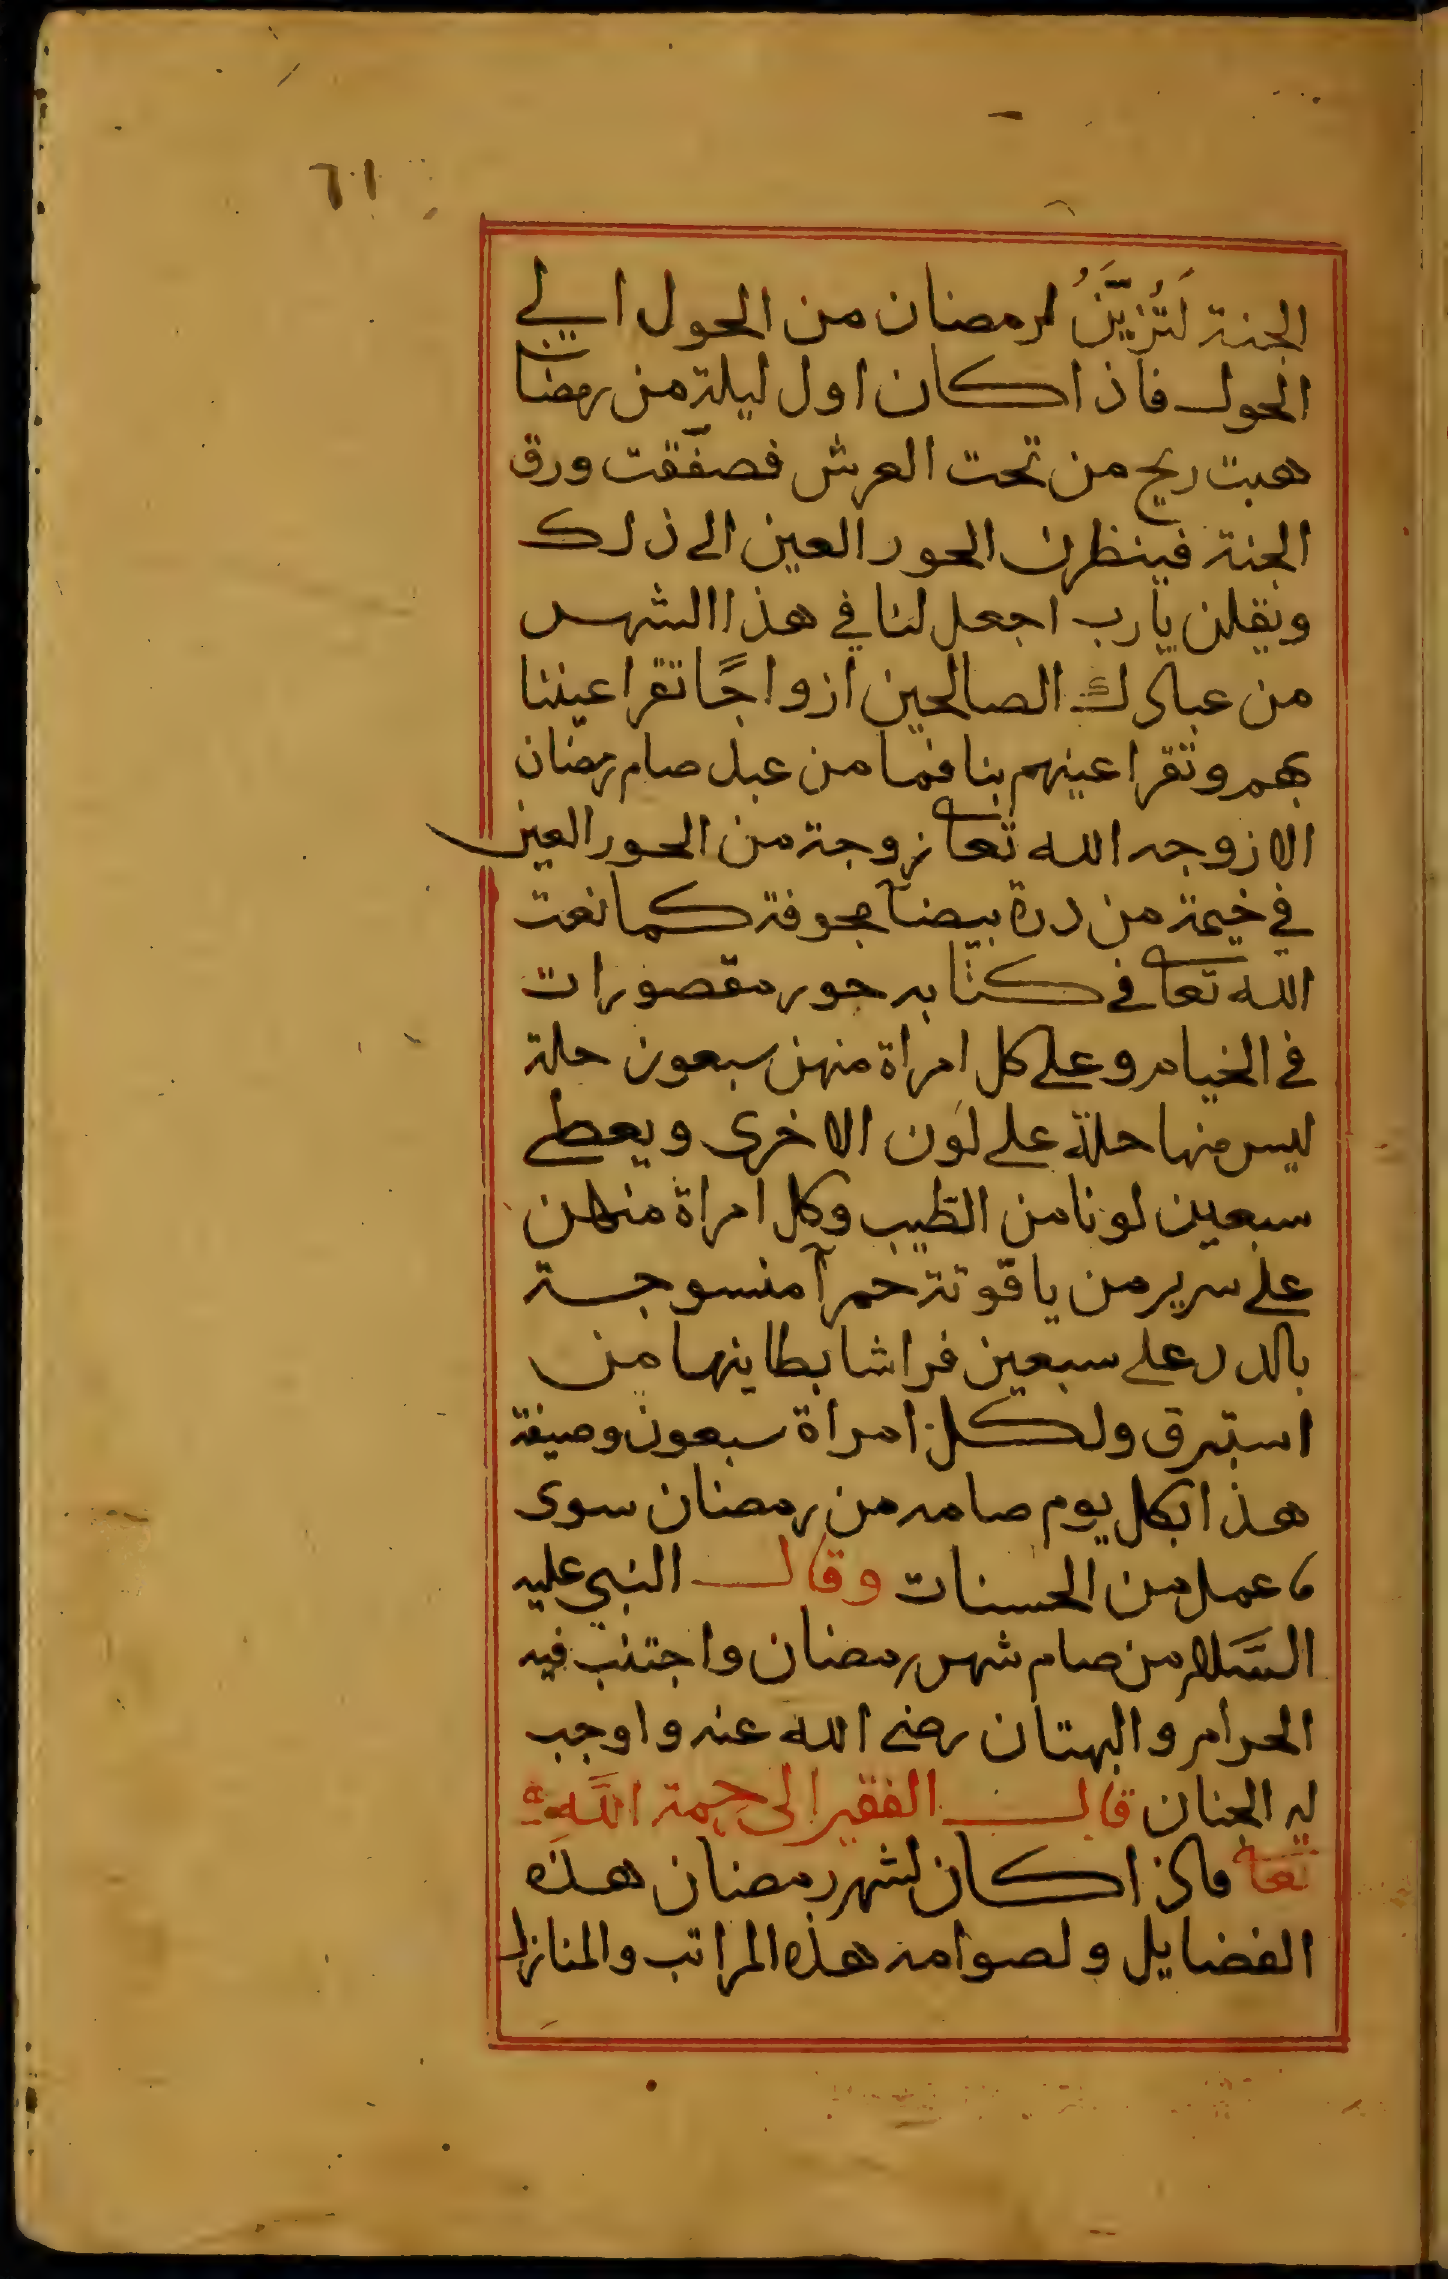 الجنة لَتُزَيَّنُ لرمضان من الحول الي
الحول فاذا كان اول ليلة من رمضان
هبت ريح من تحت العرش فصفقت ورق
الجنة فينظرن الحور العين الى ذلك
ويقلن يارب اجعل لنا في هذا الشهر
من عبادك الصالحين ازواجًا تقر اعيننا
بهم وتقر اعينهم بنا فما من عبد صام رمضان
الا زوجه الله تعا زوجة من الحور العين
في خيمة من درة بيضآ مجوفة كما نعت
الله تعا في كتابه حور مقصورات
في الخيام وعلى كل امراة منهن سبعون حلة
ليس منها حلة على لون الاخرى ويعطى
سبعين لونا من الطيب وكل امراة منهن
على سرير من ياقوتة حمرآ منسوجة
بالدر على سبعين فراشا بطاينها من
استبرق ولكل امراة سبعون وصيفة
هذا بكل يوم صامه من رمضان سوى
ما عمل من الحسنات وقال النبي عليه
السَّلام من صام شهر رمضان واجتنب فيه
الحرام والبهتان رضى الله عنه واوجب
له الجنان قال الفقير الى رحمة اللَّه
تعا فاذا كان لشهر رمضان هذه
الفضايل ولصوامه هذه المراتب والمنازل